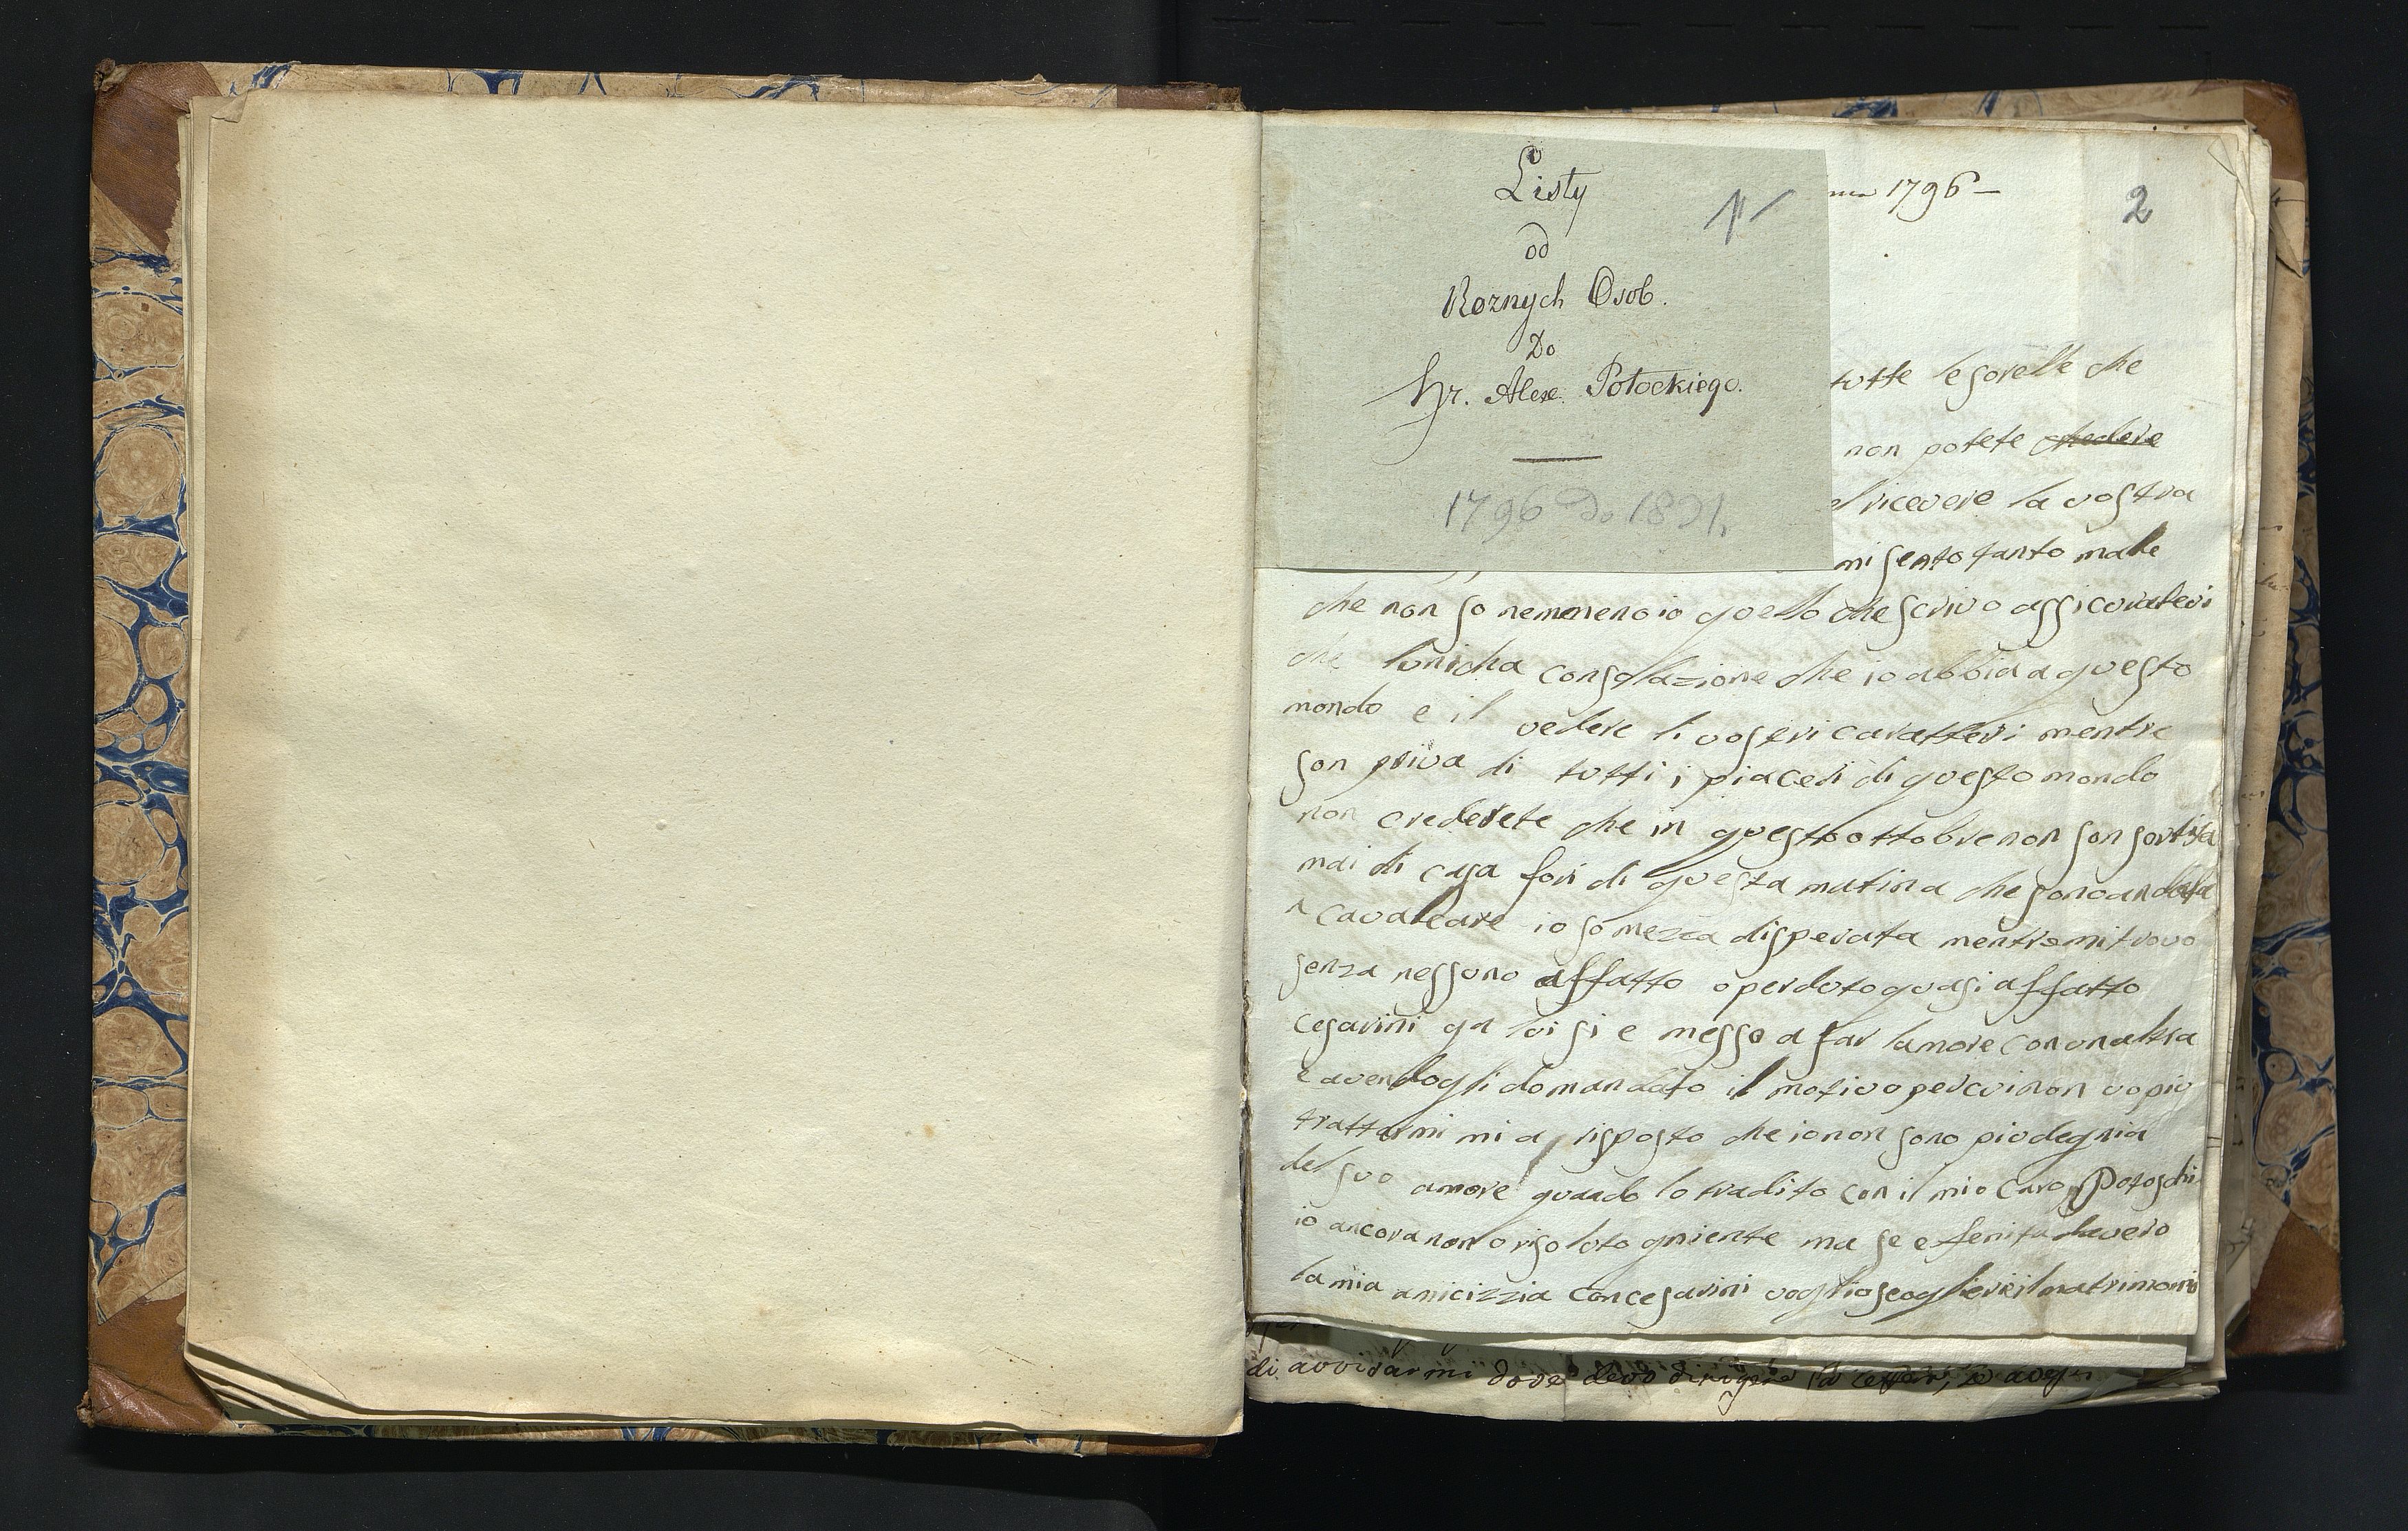 Listy
od
Roznych Osob.
Do
Hr. Alex. Potockiego.
1796 do 1821.
1796
2
tutte le sorelle che
non potete chedere
ricevere la vostra
mi sento tanto male
che non so nemmeno io quello che scrivo assicuratevi
che lunicha consolazione che io abbia a questo
mondo e il vedere li vostri caratteri mentre
son priva di tutti i piaceri di questo mondo
non crederete che in questo ottobre non son sortita
mai di casa fori di questa matina che sono andata
a cavalcare io so mezza disperata mentre mi trovo
senza nessuno affatto o perduto quasi affatto
cesarini gia lui si e messo a far lamore con unaltra
e avendogli domandato il motivo per cui non vo piu
trattarmi mi a risposto che io non sono piu degnia
del suo amore quando lo tradito con il mio caro Potoschi
io ancora non o risoluto gniente ma se e fenita davero
la mia amicizzia con cesarini voglio scogliere il matrimonio
di avvisarmi dove devo dirigere